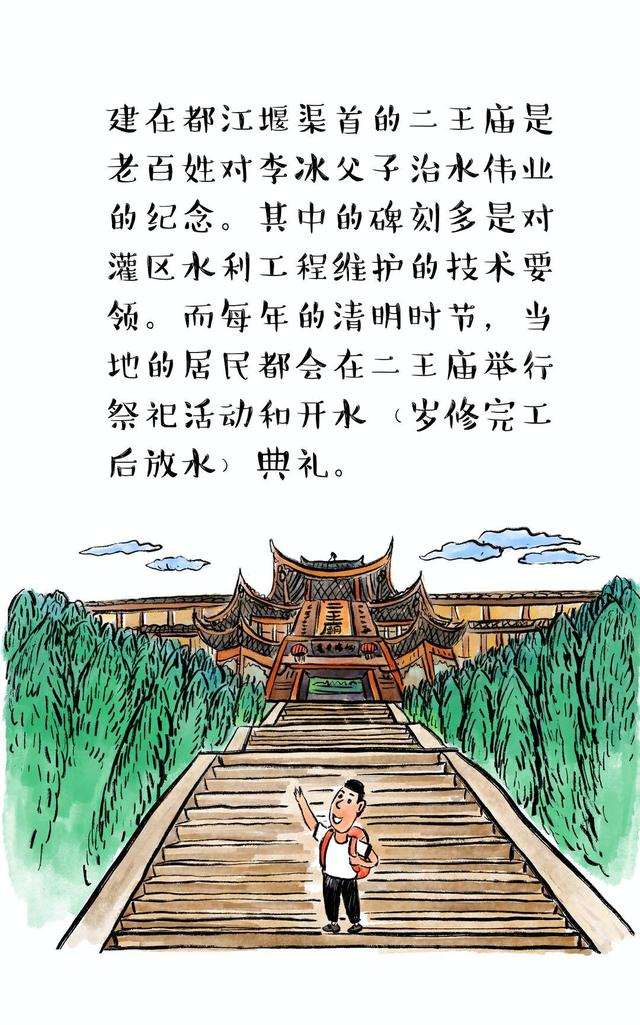 建在都江堰渠首的二王庙是
老百姓对李冰父子治水伟业
的纪念。其中的碑刻多是对
灌区水利工程维护的技术要
领。而每年的清明时节，当
地的居民都会在二王庙举行
祭祀活动和开水（岁修完工
后放水）典礼。
二王廟